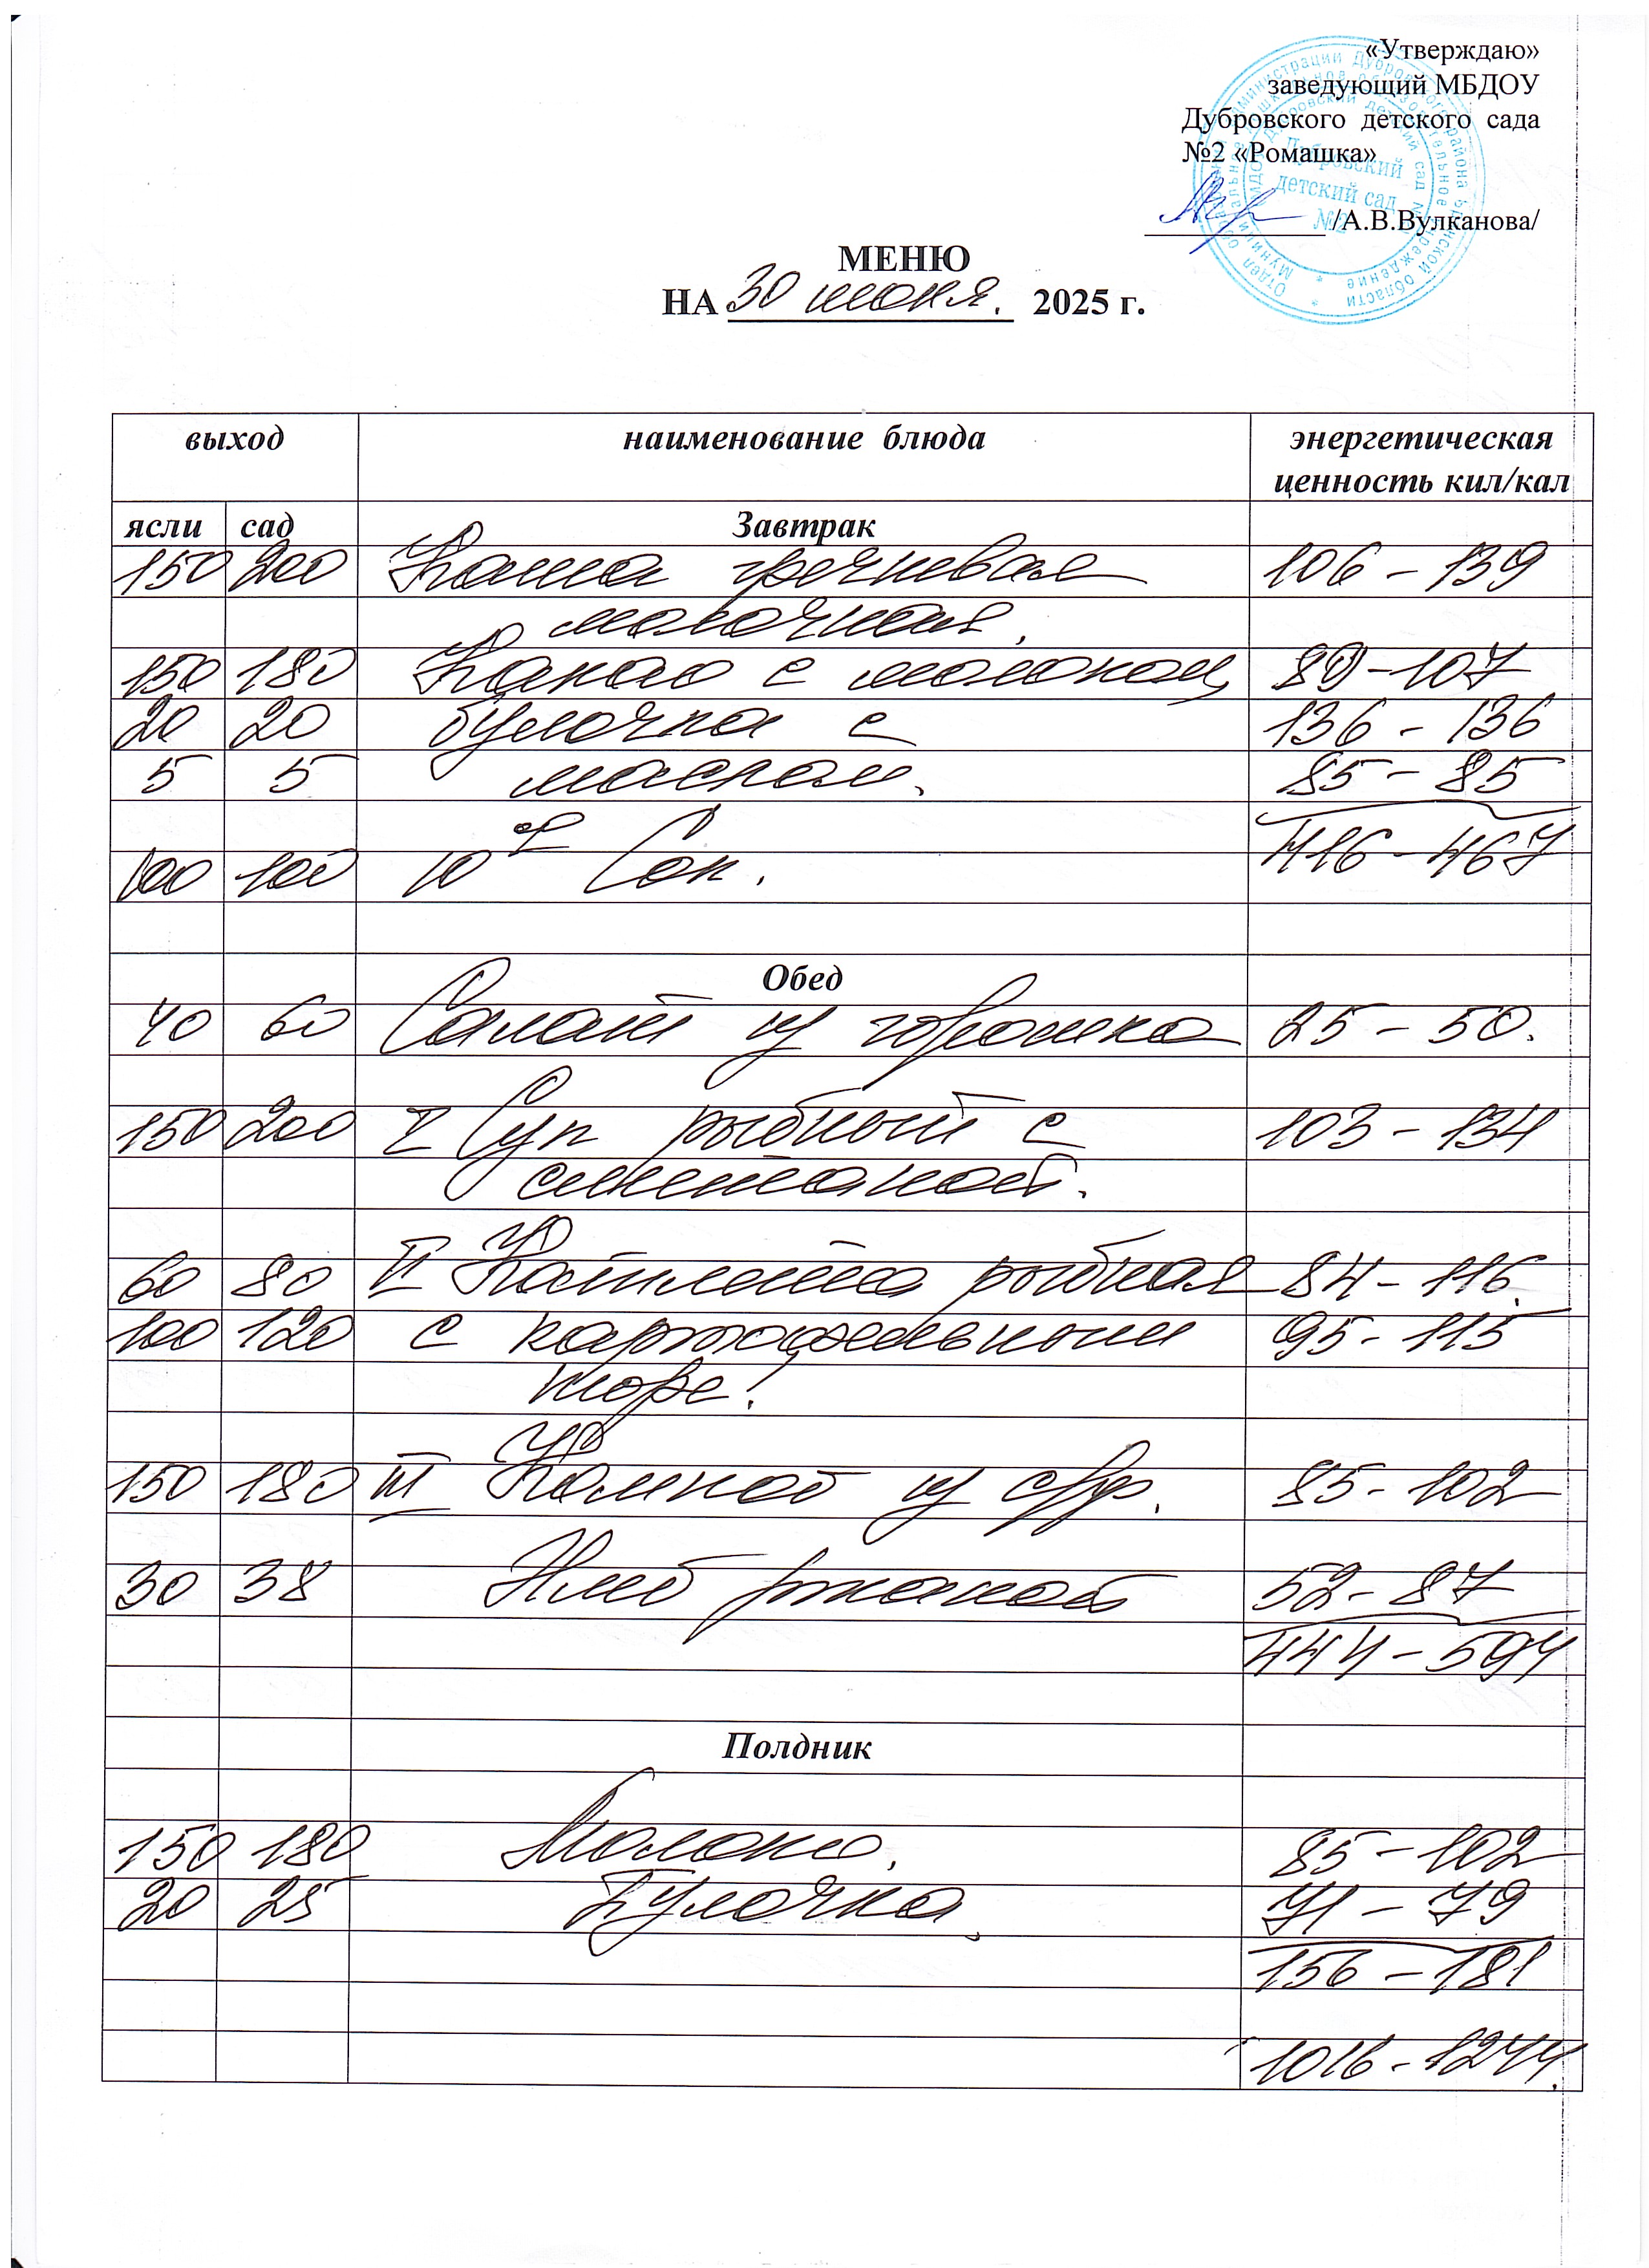 «Утверждаю»
заведующий МБДОУ
Дубровского детского сада
№2 «Ромашка»
/А.В.Вулканова/
Дубровский
детский сад
№2
МЕНЮ
НА 30 июня. 2025 г.
выход наименование блюда энергетическая
ценность кил/кал
ясли сад Завтрак
150 200 Каша гречневая 106 - 139
молочная.
150 180 Какао с молоком, 89-107
20 20 булочка с 136 - 136
5 5 маслом. 85 - 85
416 - 467
100 100 10 Сок.
Обед
40 60 Салат из горошка 25 - 50.
150 200 I Суп рыбный с 103 - 134
сметаной.
60 80 II Котлета рыбная 84 - 116.
100 120 с картофельным 95 - 115
пюре!
150 180 III Компот из с/ф. 85 - 102
30 38 Хлеб ржаной 52 - 87
444 - 594
Полдник
150 180 Молоко. 85 - 102
20 25 Булочка. 71 - 79
156 - 181
1016 - 1244.